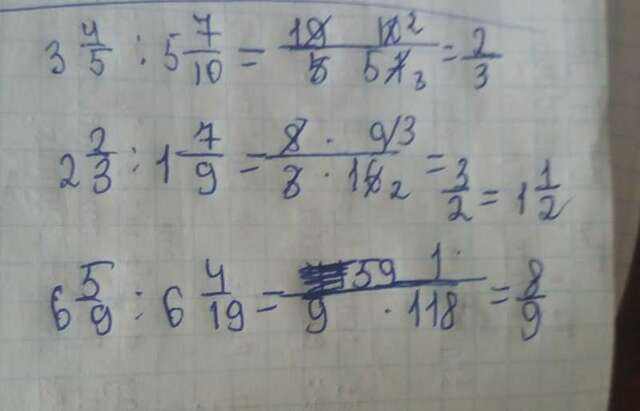 3 4/5 : 5 7/10 = 19 10 2 / 5 57 3 = 2/3
2 2/3 : 1 7/9 = 8 · 9 3 / 3 · 16 2 = 3/2 = 1 1/2
6 5/9 : 6 4/19 = 59 1 / 9 · 118 = 8/9